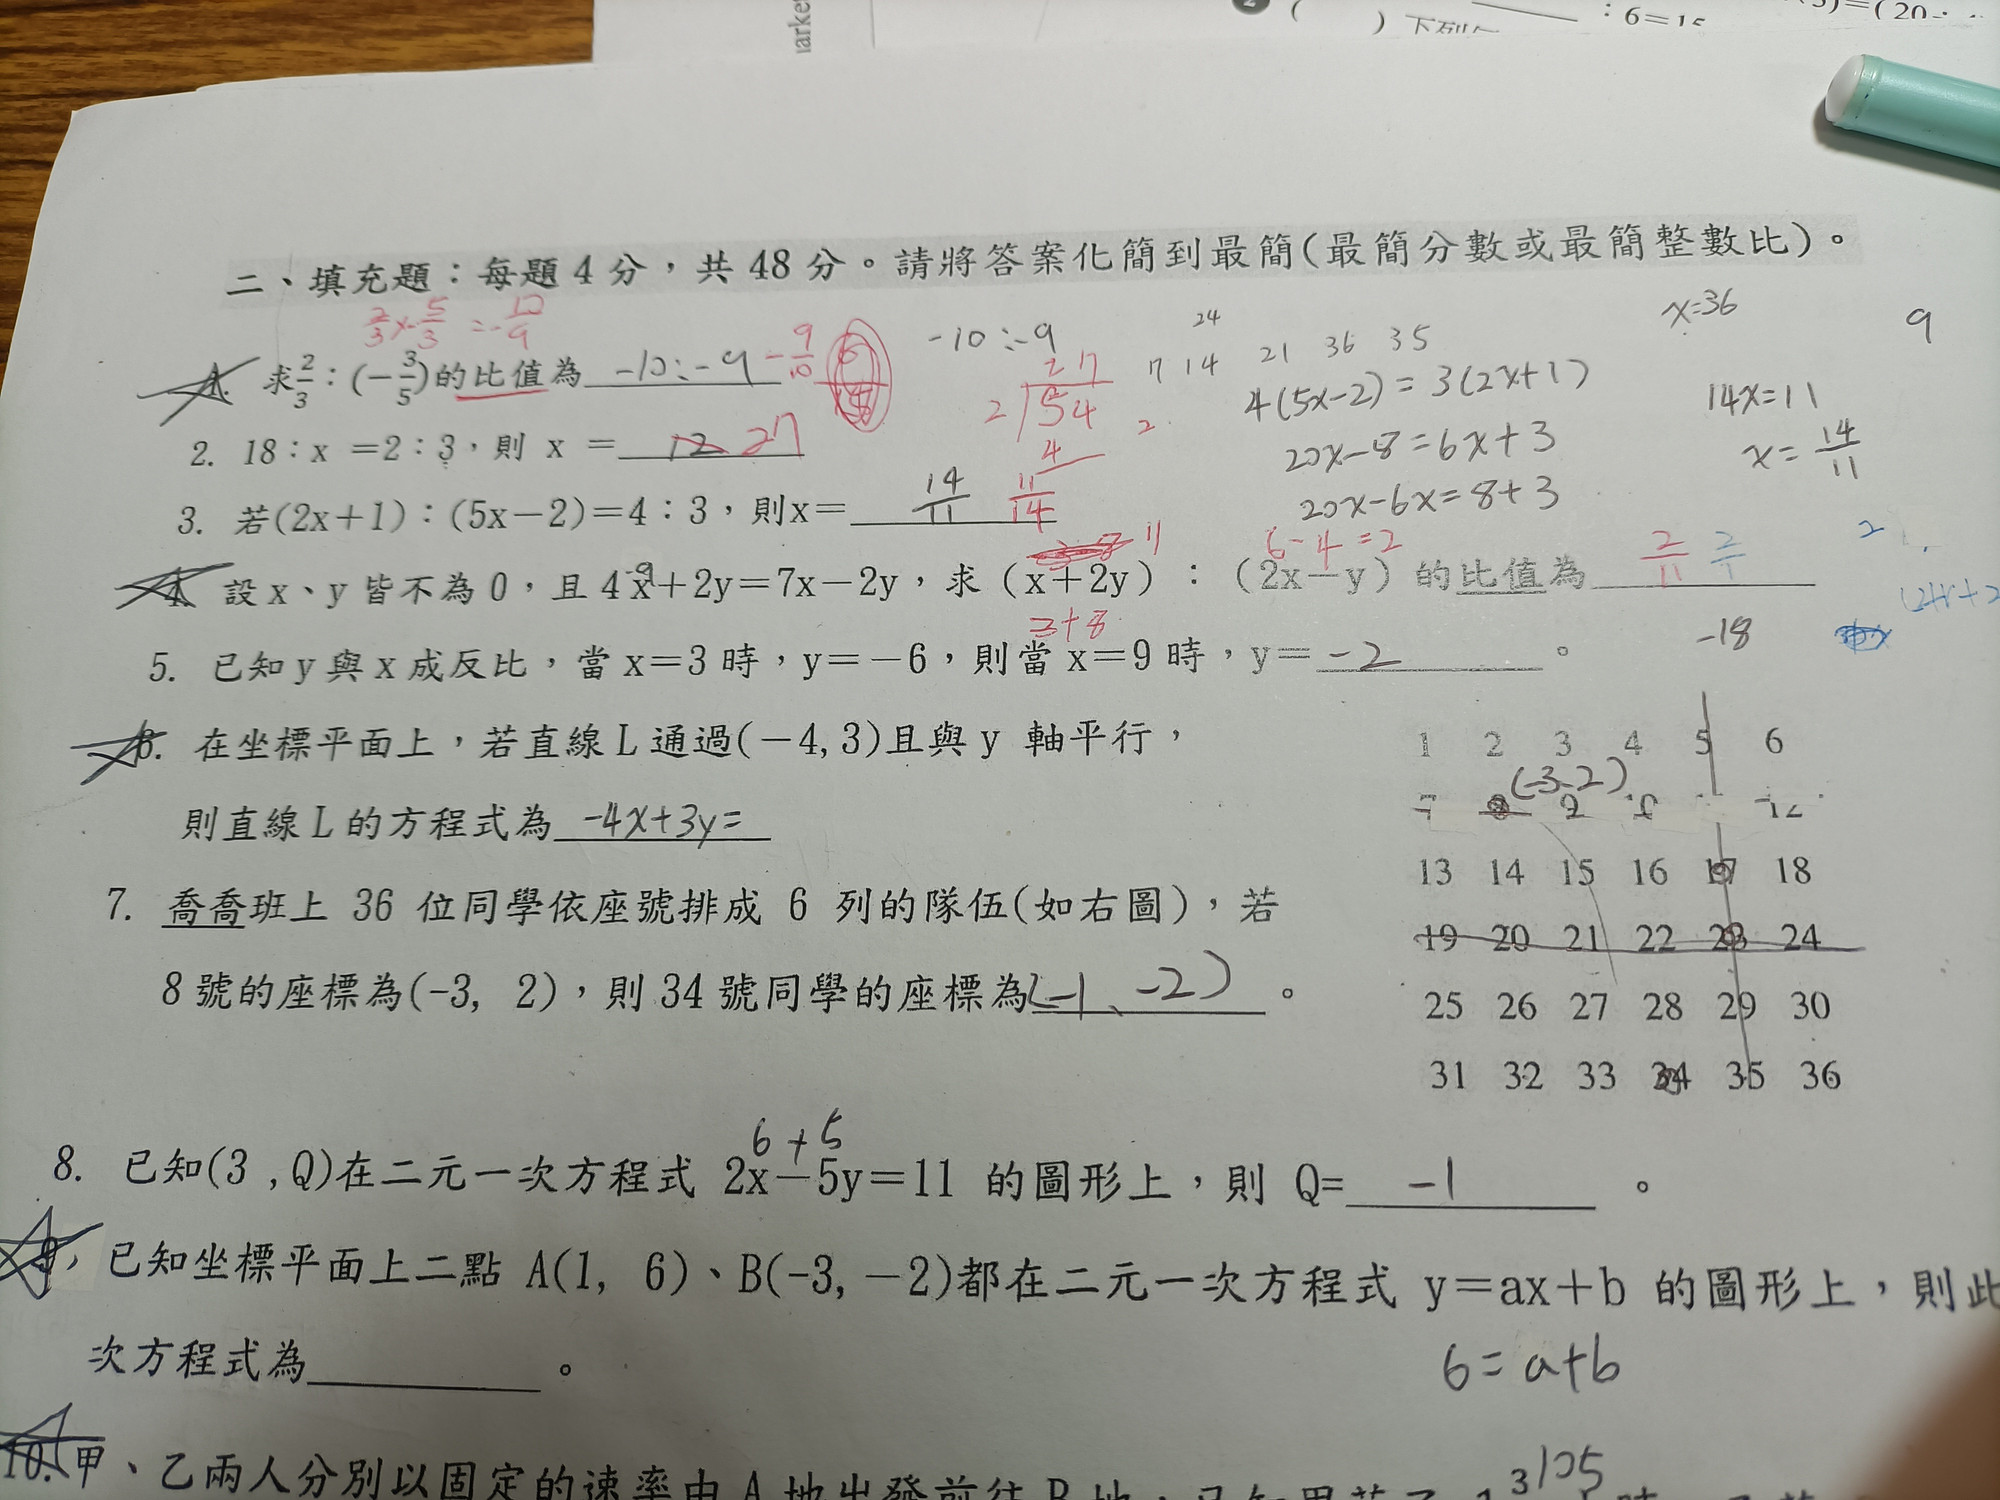 arke
: 6=15
) 下列
二、填充題：每題 4 分，共 48 分。請將答案化簡到最簡(最簡分數或最簡整數比)。
2/3 × -5/3 = -10/9
x=36
9
1. 求 2/3：(−3/5)的比值為 -10:-9 -9/10
-10:-9
24
7 14 21 36 35
27
2)54
4
2
4(5x-2)=3(2x+1)
20x-8=6x+3
20x-6x=8+3
14x=11
x=14/11
2. 18：x =2：3，則 x = 12 27
3. 若(2x+1)：(5x−2)=4：3，則x= 14/11 11/14
11
6-4=2
4. 設 x、y 皆不為 0，且 4x+2y=7x−2y，求 (x+2y)：(2x−y) 的比值為 2/11
3+8
2
-18
5. 已知 y 與 x 成反比，當 x=3 時，y=−6，則當 x=9 時，y= -2 。
6. 在坐標平面上，若直線 L 通過(−4, 3)且與 y 軸平行，
則直線 L 的方程式為 -4x+3y=
7. 喬喬班上 36 位同學依座號排成 6 列的隊伍(如右圖)，若
8 號的座標為(-3, 2)，則 34 號同學的座標為(-1、-2) 。
1 2 3 4 5 6
(-3-2)
7 8 9 10 12
13 14 15 16 17 18
19 20 21 22 23 24
25 26 27 28 29 30
31 32 33 34 35 36
6+5
8. 已知(3 , Q)在二元一次方程式 2x−5y=11 的圖形上，則 Q= -1 。
9. 已知坐標平面上二點 A(1, 6)、B(-3, −2)都在二元一次方程式 y=ax+b 的圖形上，則此
次方程式為 。
6=a+b
3 105
10. 甲、乙兩人分別以固定的速率由 A 地出發前往 B 地，已知甲若